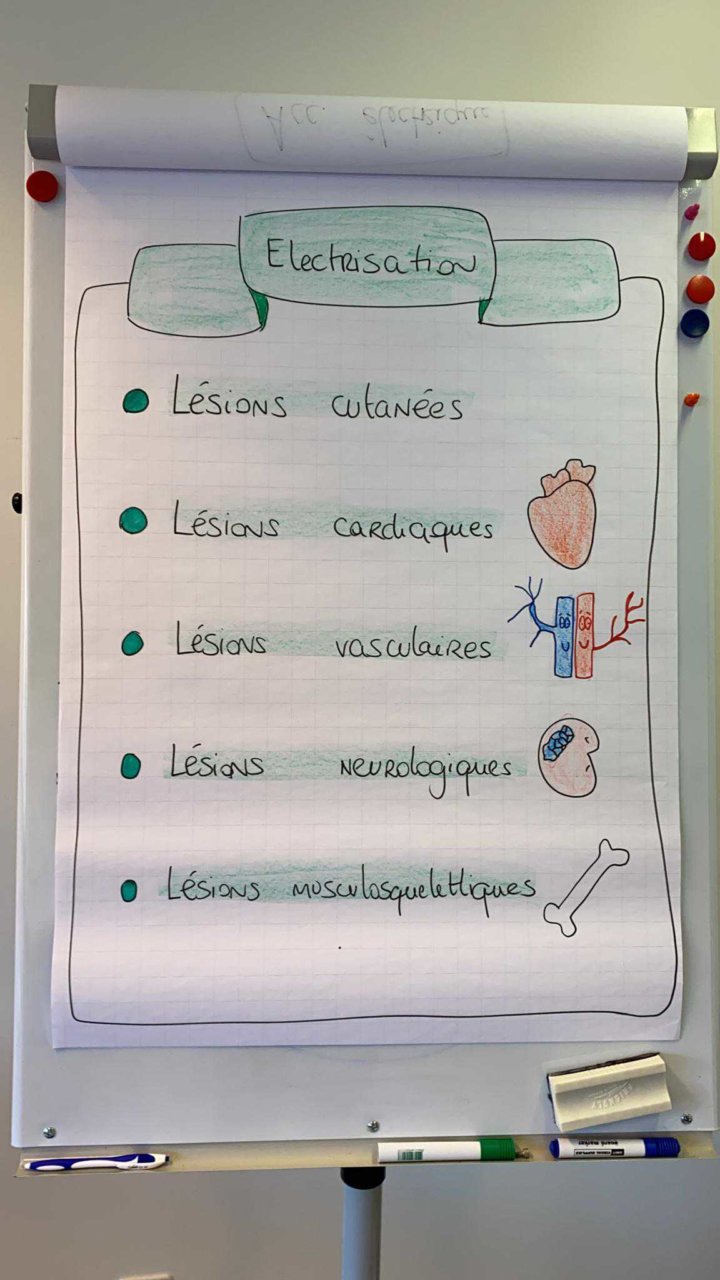 Acc. électrique
Electrisation
Lésions cutanées
Lésions cardiaques
Lésions vasculaires
Lésions neurologiques
Lésions musculosquelettiques